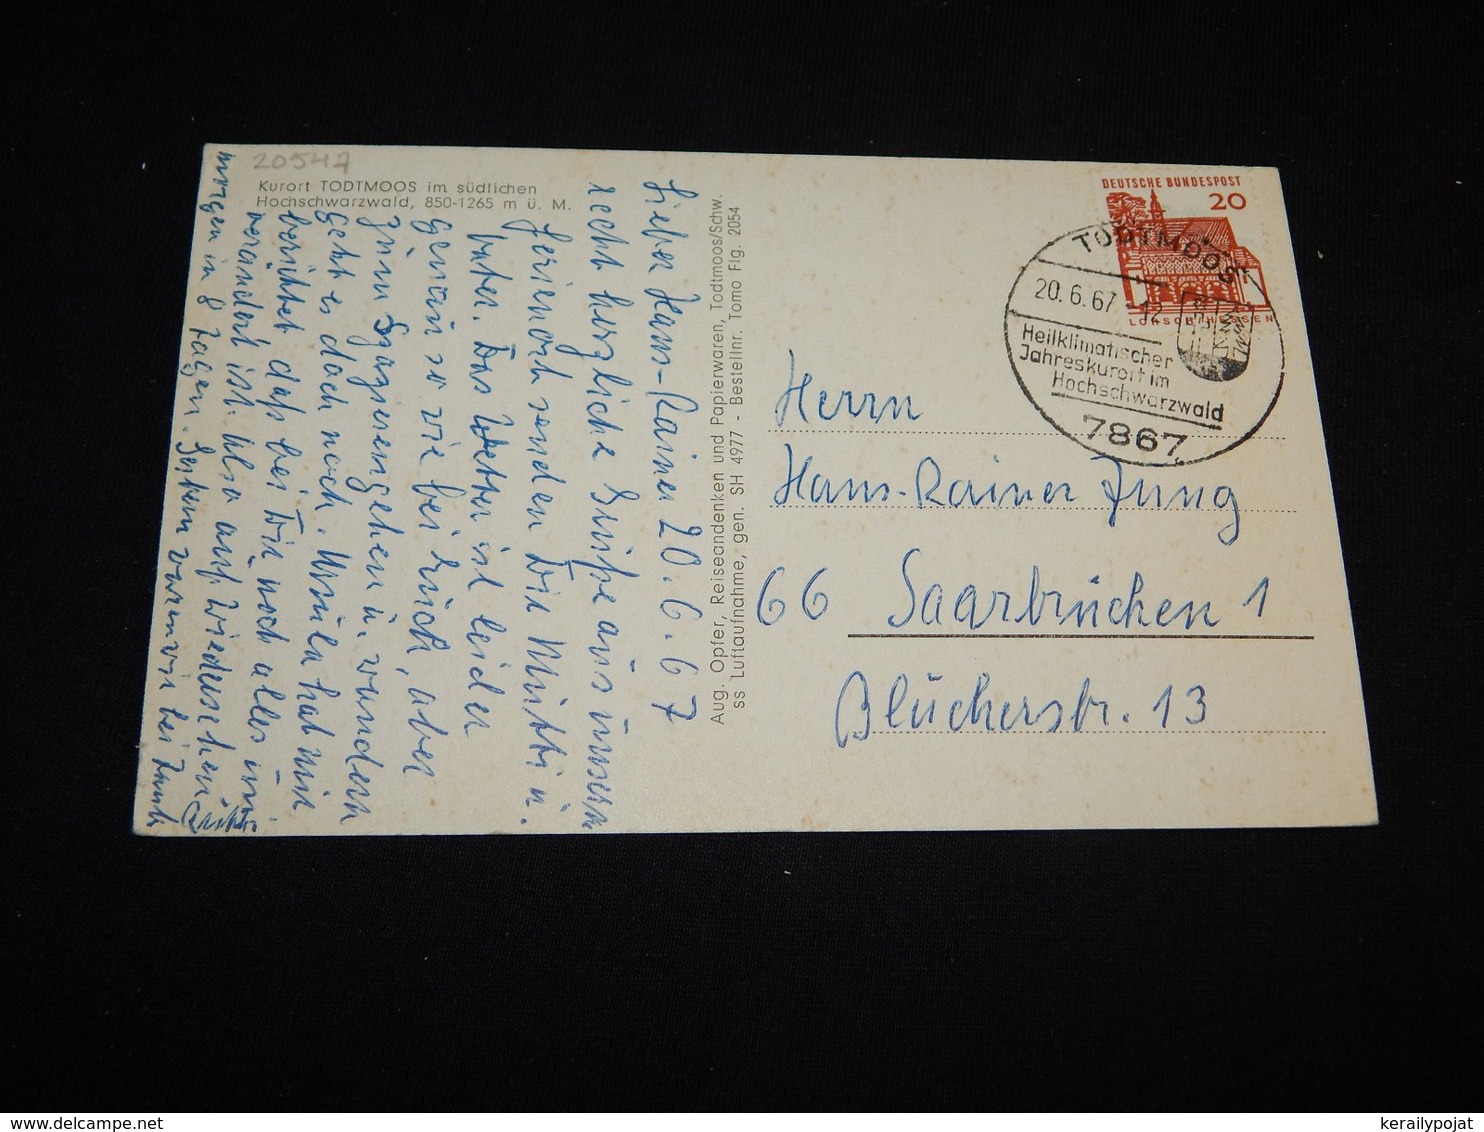 20547
Kurort TODTMOOS im südlichen
Hochschwarzwald, 850-1265 m ü. M.
Lieber Hans-Rainer 20.6.67
recht herzliche Grüße aus unserm
Ferienort senden Dir Mutti u.
Vater. Das Wetter ist leider
genau so wie bei Euch, aber
zum Spazierengehen u. wandern
geht es doch noch. Ursula hat mir
berichtet, daß bei Dir noch alles un
verändert ist. Also auf Wiedersehen
morgen in 8 Tagen. Gestern waren wir bei
Aug. Opfer, Reiseandenken und Papierwaren, Todtmoos/Schw.
ss Luftaufnahme, gen. SH 4977 - Bestellnr. Tomo Flg. 2054
DEUTSCHE BUNDESPOST
20
LORSCH HESSEN
TODTMOOS
20.6.67
Heilklimatischer
Jahreskurort im
Hochschwarzwald
7867
Herrn
Hans-Rainer Jung
66 Saarbrücken 1
Blücherstr. 13
kerailypojat